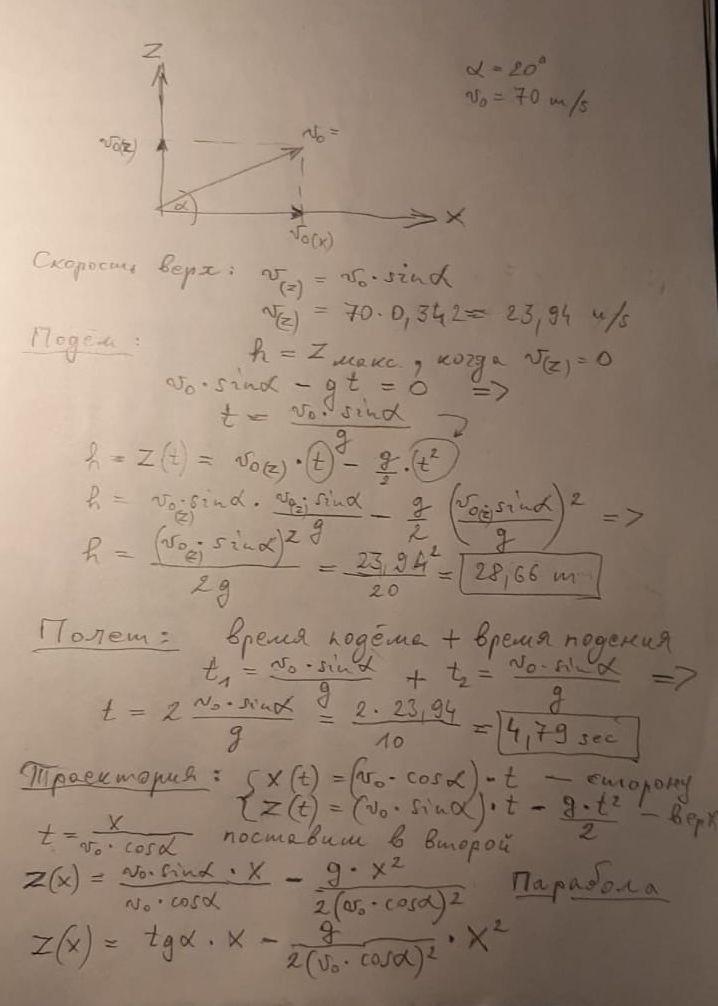 Z
α = 20°
v₀ = 70 m/s
v₀(z)
v₀ =
α
X
v₀(x)
Скорость верх: v(z) = v₀ · sinα
v(z) = 70 · 0,342 = 23,94 м/s
Подём:
h = z макс., когда v(z) = 0
v₀ · sinα − gt = 0 =>
t = v₀ · sinα / g
h = z(t) = v₀(z) · t − g/2 · t²
h = v₀(z) · sinα · v₀(z) · sinα / g − g/2 (v₀(z) sinα / g)² =>
h = (v₀(z) · sinα)² / 2g = 23,94² / 20 = 28,66 m
Полет: время подёма + время подения
t₁ = v₀ · sinα / g + t₂ = v₀ · sinα / g =>
t = 2 v₀ · sinα / g = 2 · 23,94 / 10 = 4,79 sec
Траектория: { x(t) = (v₀ · cosα) · t — сторону
{ z(t) = (v₀ · sinα) · t − g · t² / 2 — верх
t = x / v₀ · cosα поставим в второй
z(x) = v₀ · sinα · x / v₀ · cosα − g · x² / 2(v₀ · cosα)² Парабола
z(x) = tgα · x − g / 2(v₀ · cosα)² · x²